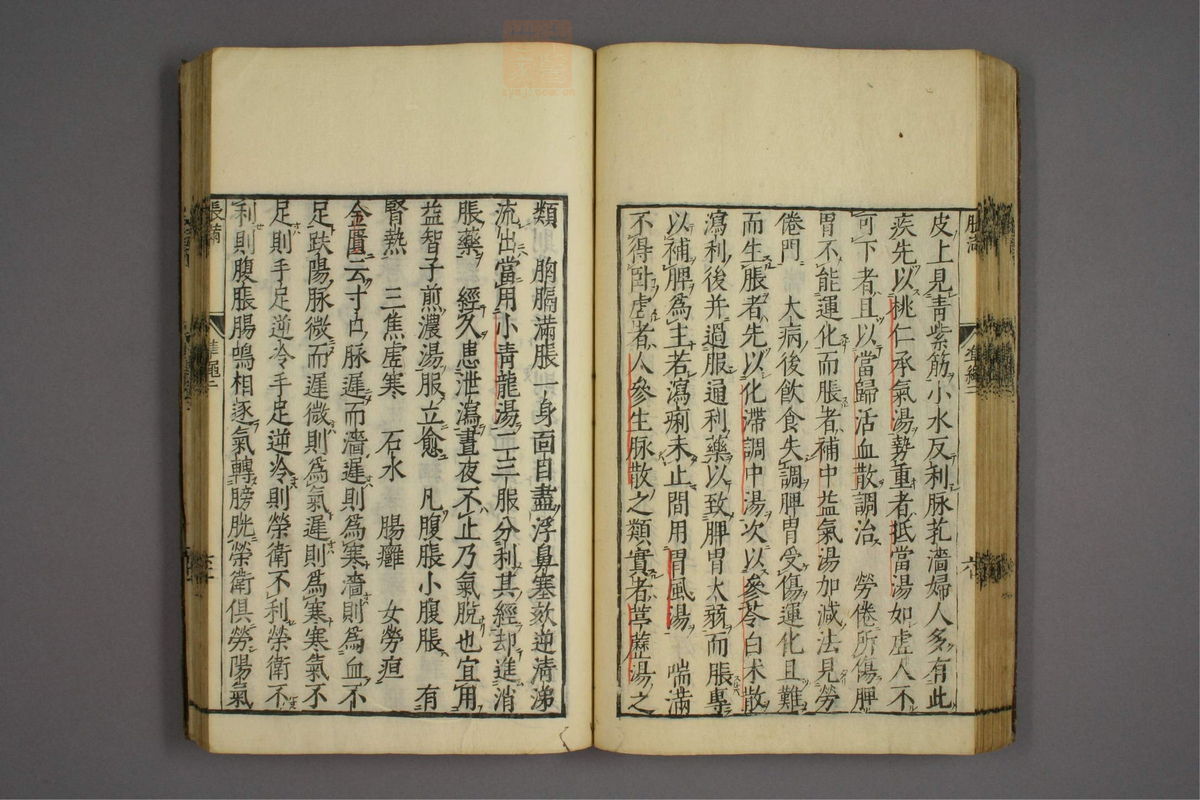 皮上見青紫筋小水反利脉芤濇婦人多有此
疾先以桃仁承氣湯勢重者抵當湯如虛人不
可下者且以當歸活血散調治　勞倦所傷脾
胃不能運化而脹者補中益氣湯加減法見勞
倦門　大病後飲食失調脾胃受傷運化且難
而生脹者先以化滯調中湯次以參苓白朮散
瀉利後并過服通利藥以致脾胃太弱而脹專
以補脾爲主若瀉痢未止間用胃風湯　喘滿
不得臥虛者人參生脉散之類實者葶藶湯之
類　胸膈滿脹一身面目盡浮鼻塞欬逆清涕
流出當用小青龍湯二三服分利其經却進消
脹藥　經久患泄瀉晝夜不止乃氣脫也宜用
益智子煎濃湯服立愈　凡腹脹小腹脹　有
腎熱　三焦虛寒　石水　腸癰　女勞疸
金匱云寸口脉遲而濇遲則爲寒濇則爲血不
足趺陽脉微而遲微則爲氣遲則爲寒寒氣不
足則手足逆冷手足逆冷則榮衛不利榮衛不
利則腹脹腸鳴相逐氣轉膀胱榮衛俱勞陽氣
脹滿